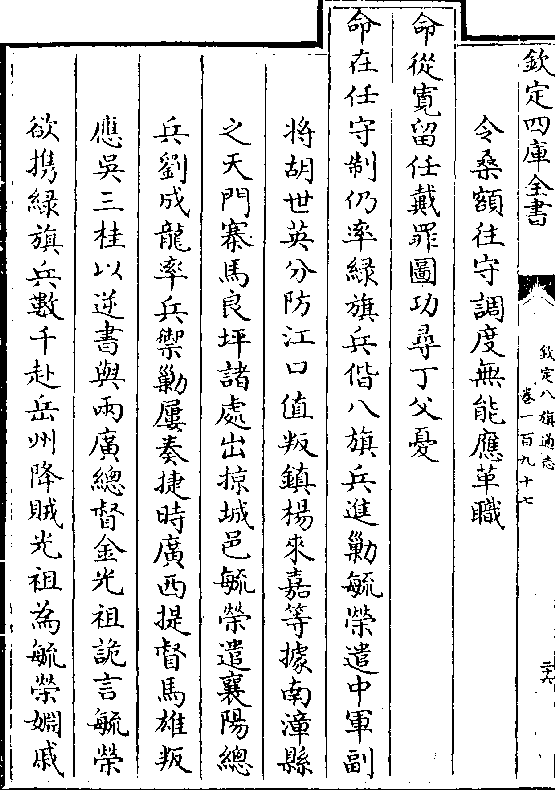 欽定四庫全書
欽定八旗通志
卷一百九十七
二十六
令桑額往守調度無能應革職
命從寬留任戴罪圖功尋丁父憂
命在任守制仍率綠旗兵偕八旗兵進勦毓榮遣中軍副
將胡世英分防江口值叛鎮楊來嘉等據南漳縣
之天門寨馬良坪諸處出掠城邑毓榮遣襄陽總
兵劉成龍率兵禦勦屢奏捷時廣西提督馬雄叛
應吳三桂以逆書與兩廣總督金光祖詭言毓榮
欲携綠旗兵數千赴岳州降賊光祖為毓榮姻戚